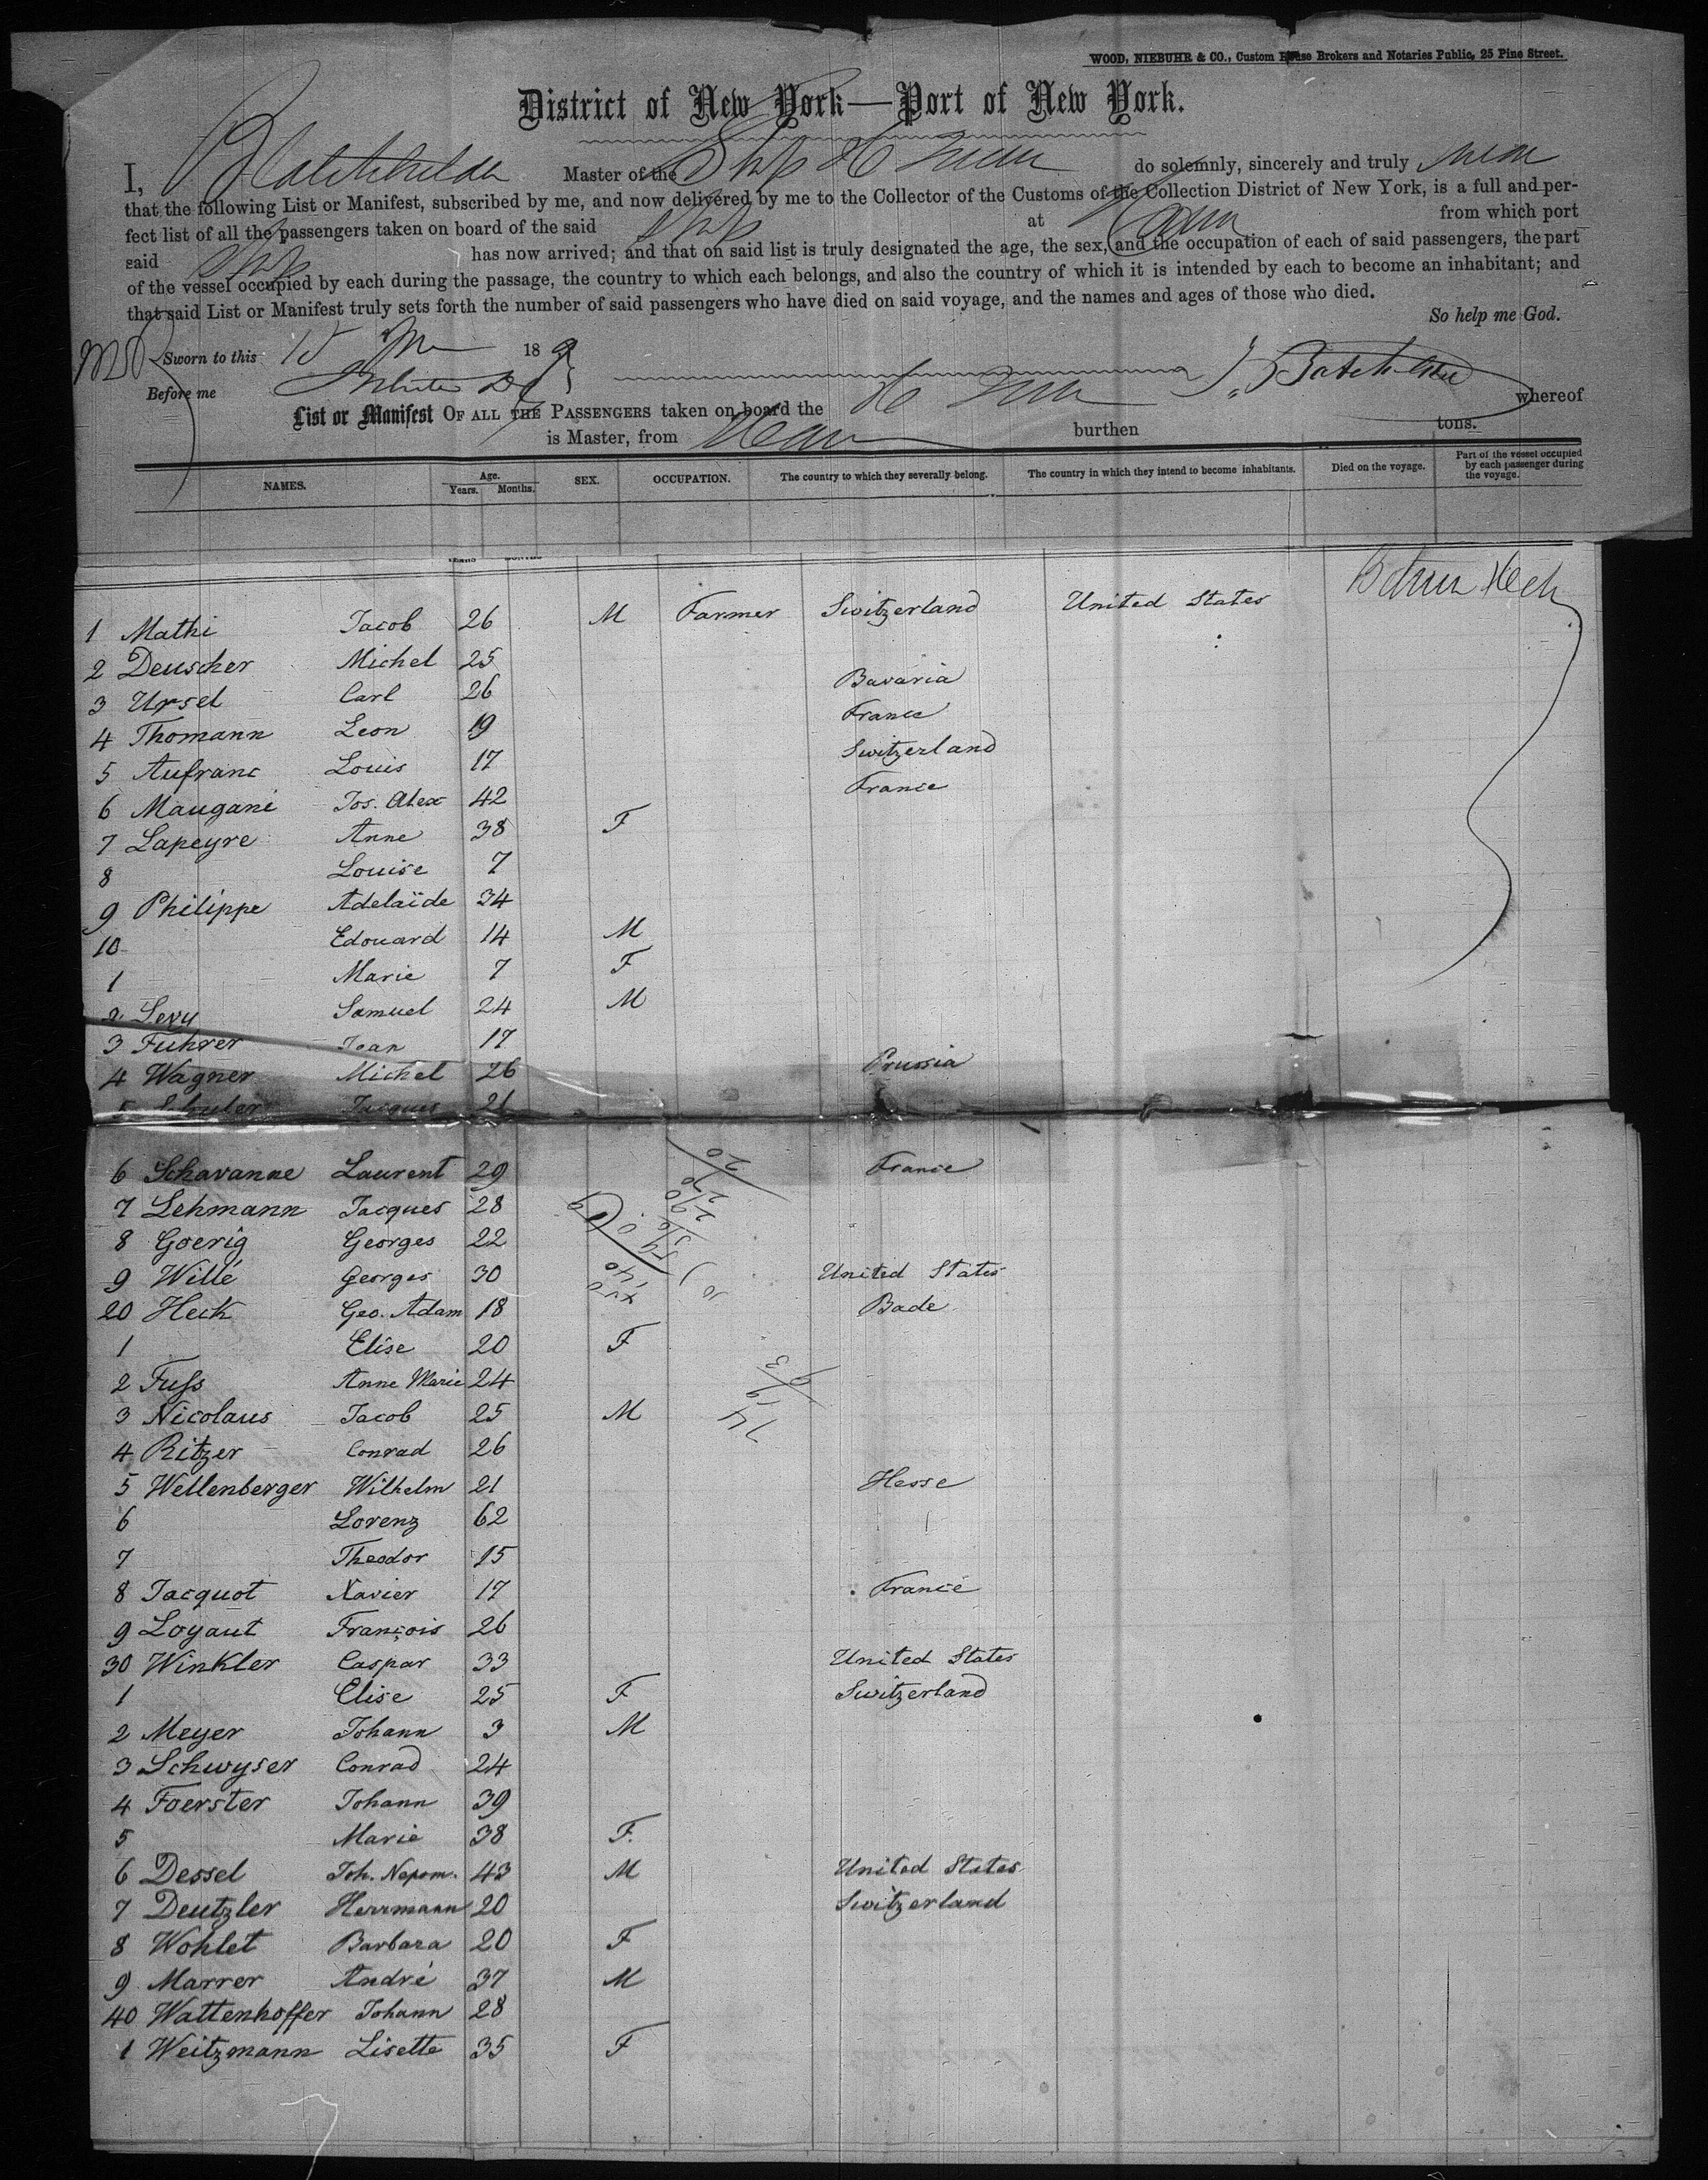 WOOD, NIEBUHR & CO., Custom House Brokers and Notaries Public, 25 Pine Street.
District of New York—Port of New York.
I, Batchelder Master of the Ship do solemnly, sincerely and truly
that the following List or Manifest, subscribed by me, and now delivered by me to the Collector of the Customs of the Collection District of New York, is a full and per-
fect list of all the passengers taken on board of the said Ship at from which port
said Ship has now arrived; and that on said list is truly designated the age, the sex, and the occupation of each of said passengers, the part
of the vessel occupied by each during the passage, the country to which each belongs, and also the country of which it is intended by each to become an inhabitant; and
that said List or Manifest truly sets forth the number of said passengers who have died on said voyage, and the names and ages of those who died.
So help me God.
Sworn to this 18
Before me
Batchelder
List or Manifest OF ALL THE PASSENGERS taken on board the whereof
is Master, from burthen tons.
NAMES. Age. Years. Months. SEX. OCCUPATION. The country to which they severally belong. The country in which they intend to become inhabitants. Died on the voyage. Part of the vessel occupied by each passenger during the voyage.
YEARS MONTHS
1 Mathi Jacob 26 M Farmer Switzerland United States
2 Deuscher Michel 25
3 Ursel Carl 26 Bavaria
4 Thomann Leon 19 France
5 Aufranc Louis 17 Switzerland
6 Maugani Jos. Alex 42 France
7 Lapeyre Anne 38 F
8 Louise 7
9 Philippe Adelaïde 34
10 Edouard 14 M
1 Marie 7 F
2 Levy Samuel 24 M
3 Fuhrer Jean 17
4 Wagner Michel 26 Prussia
5 Schuler Jacques 21
6 Schavanne Laurent 29 France
7 Lehmann Jacques 28
8 Goerig Georges 22
9 Willé Georges 30 United States
20 Heck Geo. Adam 18 Bade
1 Elise 20 F
2 Fuss Anne Marie 24
3 Nicolaus Jacob 25 M
4 Ritzer Conrad 26
5 Wellenberger Wilhelm 21 Hesse
6 Lorenz 62
7 Theodor 15
8 Jacquot Xavier 17 France
9 Loyaut François 26
30 Winkler Caspar 33 United States
1 Elise 25 F Switzerland
2 Meyer Johann 3 M
3 Schwyser Conrad 24
4 Foerster Johann 39
5 Marie 38 F.
6 Dessel Joh. Nepom. 43 M United States
7 Deutzler Herrmann 20 Switzerland
8 Wohlet Barbara 20 F
9 Marrer André 37 M
40 Wattenhoffer Johann 28
1 Weitzmann Lisette 35 F